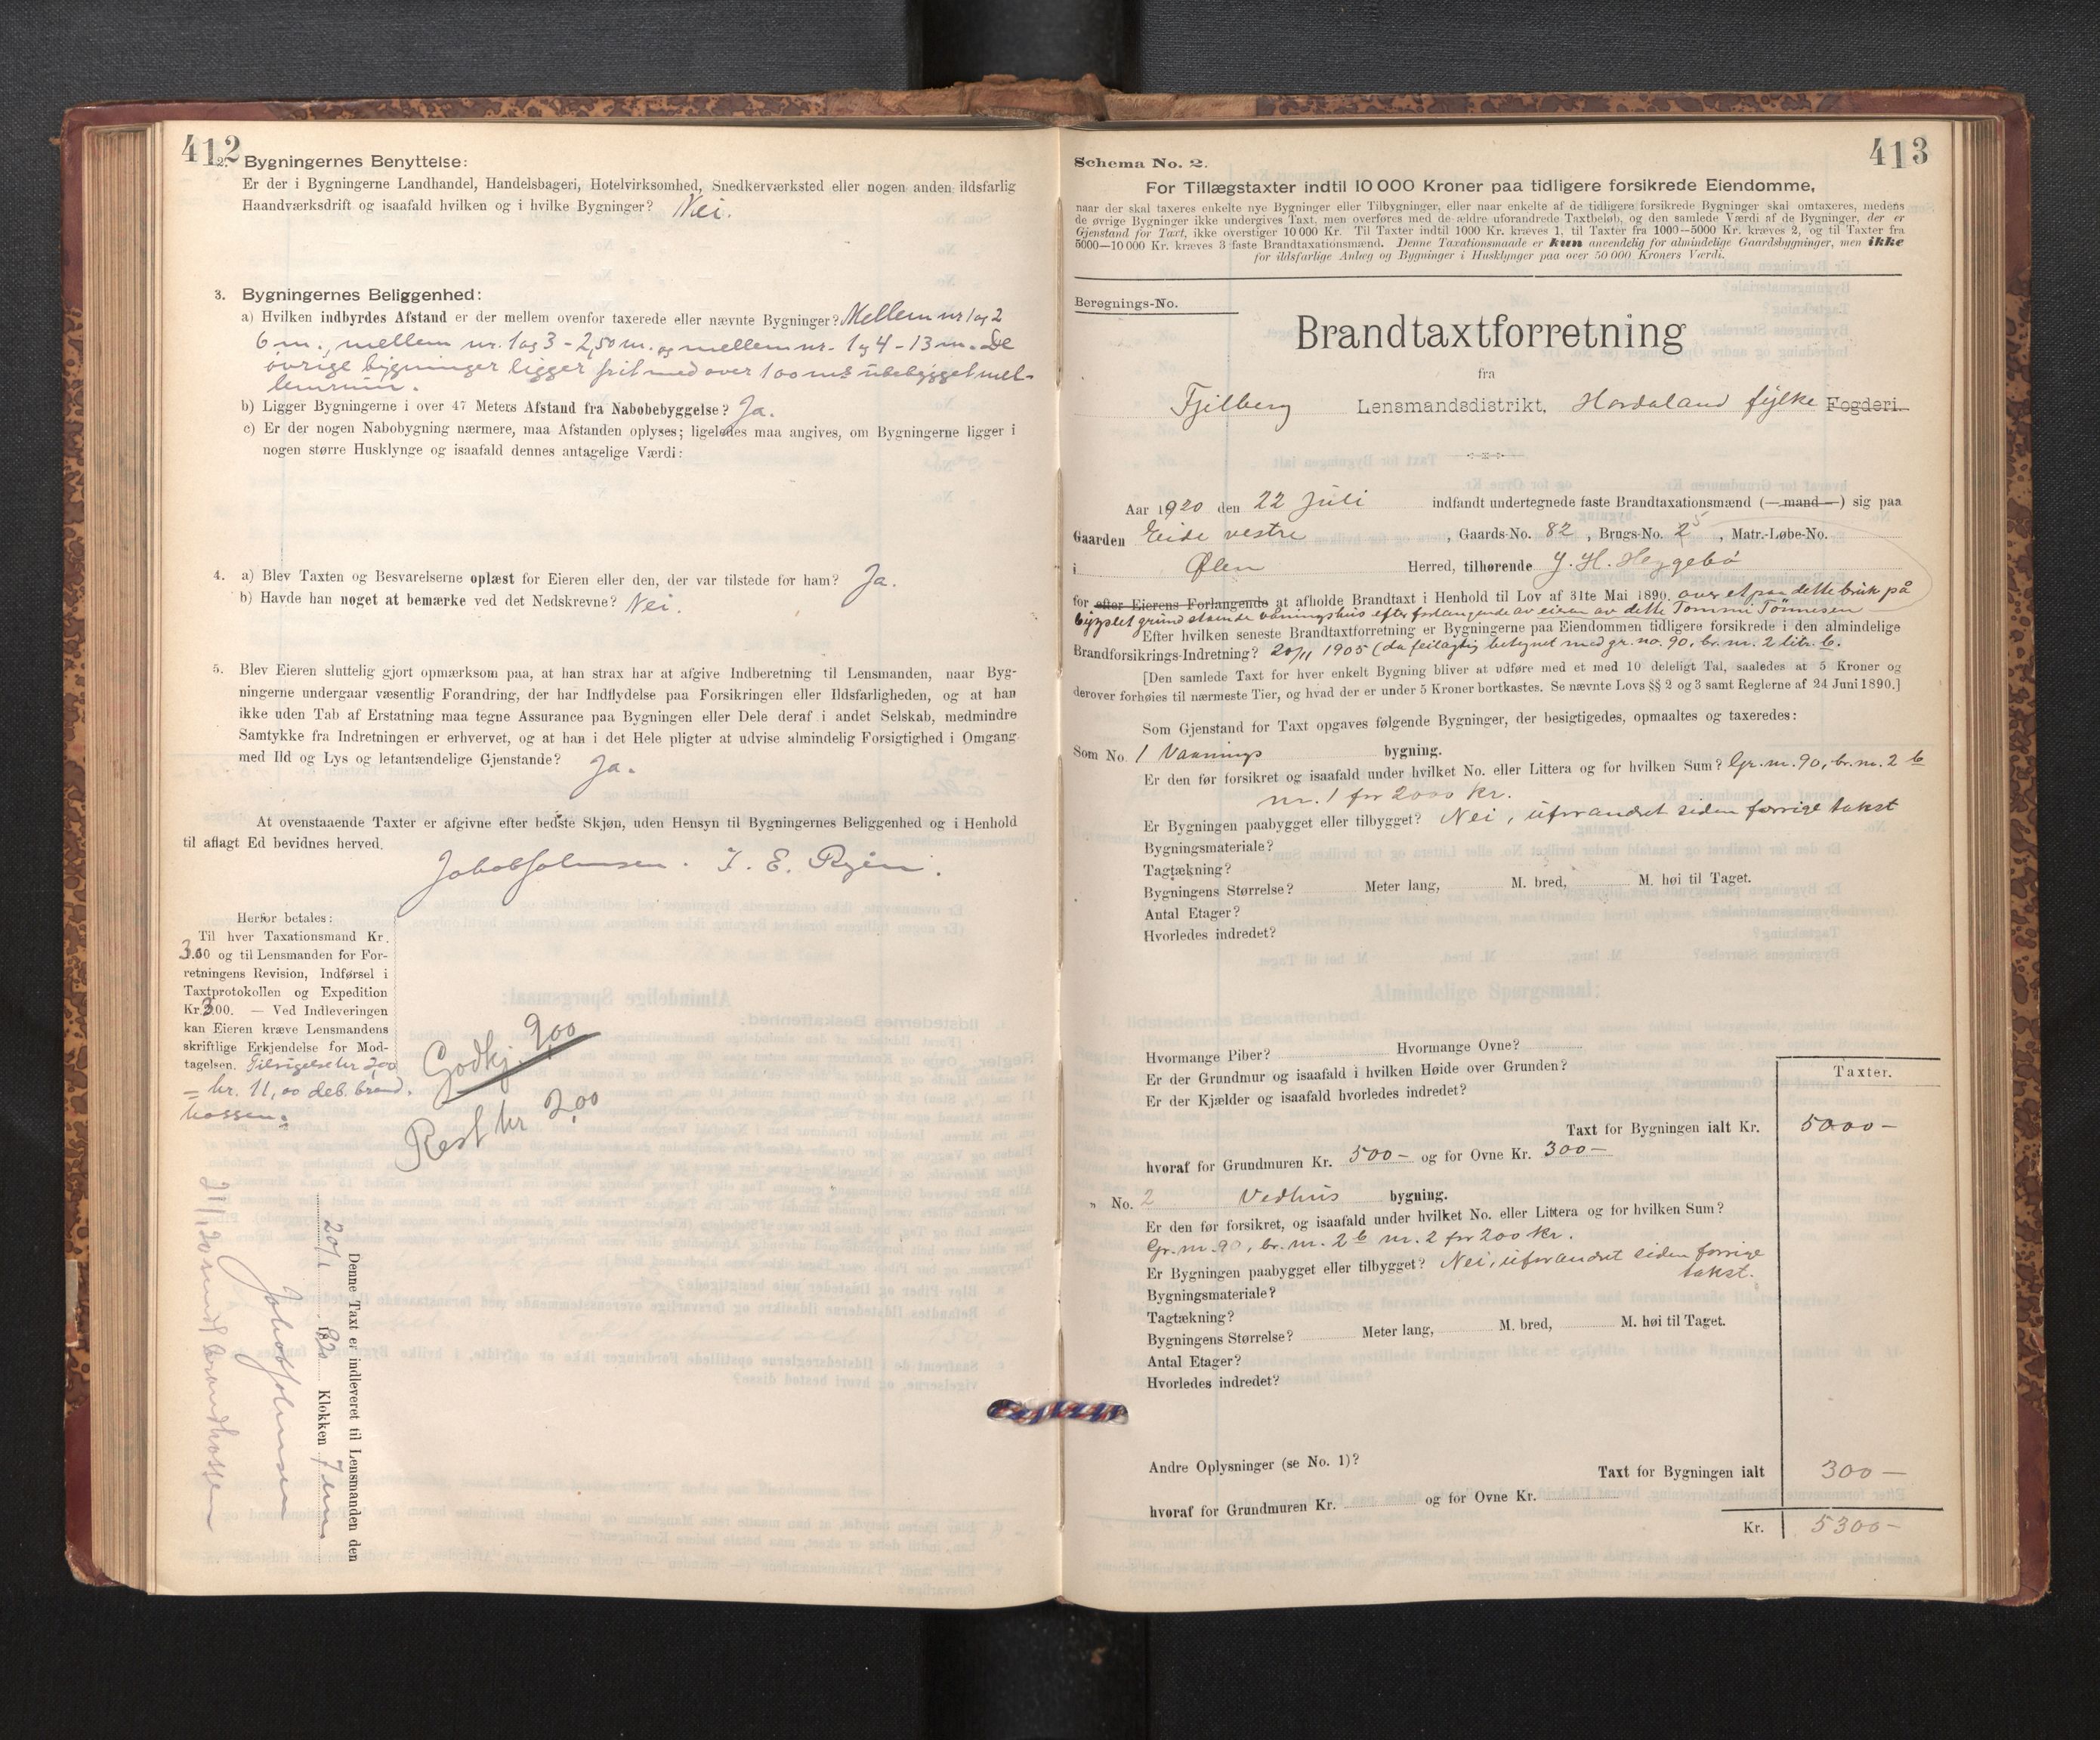 412
2. Bygningernes Benyttelse:
Er der i Bygningerne Landhandel, Handelsbageri, Hotelvirksomhed, Snedkerværksted eller nogen anden ildsfarlig
Haandværksdrift og isaafald hvilken og i hvilke Bygninger? Nei.
3. Bygningernes Beliggenhed:
a) Hvilken indbyrdes Afstand er der mellem ovenfor taxerede eller nævnte Bygninger? Mellem nr 1 og 2
6 m., mellem nr. 1 og 3 - 2,50 m. og mellem nr. 1 og 4 - 13 m. De
övrige bygninger ligger frit med over 100 ms ubebygget mel-
lemrum.
b) Ligger Bygningerne i over 47 Meters Afstand fra Nabobebyggelse? Ja.
c) Er der nogen Nabobygning nærmere, maa Afstanden oplyses; ligeledes maa angives, om Bygningerne ligger i
nogen større Husklynge og isaafald dennes antagelige Værdi:
4. a) Blev Taxten og Besvarelserne oplæst for Eieren eller den, der var tilstede for ham? Ja.
b) Havde han noget at bemærke ved det Nedskrevne? Nei.
5. Blev Eieren sluttelig gjort opmærksom paa, at han strax har at afgive Indberetning til Lensmanden, naar Byg-
ningerne undergaar væsentlig Forandring, der har Indflydelse paa Forsikringen eller Ildsfarligheden, og at han
ikke uden Tab af Erstatning maa tegne Assurance paa Bygningen eller Dele deraf i andet Selskab, medmindre
Samtykke fra Indretningen er erhvervet, og at han i det Hele pligter at udvise almindelig Forsigtighed i Omgang
med Ild og Lys og letantændelige Gjenstande? Ja.
At ovenstaaende Taxter er afgivne efter bedste Skjøn, uden Hensyn til Bygningernes Beliggenhed og i Henhold
til aflagt Ed bevidnes herved.
Jakob Johnsen. I. E.
Herfor betales:
Til hver Taxationsmand Kr.
3.00 og til Lensmanden for For-
retningens Revision, Indførsel i
Taxtprotokollen og Expedition
Kr. 3.00. — Ved Indleveringen
kan Eieren kræve Lensmandens
skriftlige Erkjendelse for Mod-
tagelsen. Tilsigelse kr 2,00
= kr. 11,00 deb. brand.
kassen.
Godkj. 9,00
Rest kr 2,00
Denne Taxt er indleveret til Lensmanden den
20/1 1920 Klokken 7 em.
Jakob Johnsen
21/1 20 brandkassen
413
Schema No. 2.
For Tillægstaxter indtil 10 000 Kroner paa tidligere forsikrede Eiendomme,
naar der skal taxeres enkelte nye Bygninger eller Tilbygninger, eller naar enkelte af de tidligere forsikrede Bygninger skal omtaxeres, medens
de øvrige Bygninger ikke undergives Taxt, men overføres med de ældre uforandrede Taxtbeløb, og den samlede Værdi af de Bygninger, der er
Gjenstand for Taxt, ikke overstiger 10 000 Kr. Til Taxter indtil 1000 Kr. kræves 1, til Taxter fra 1000—5000 Kr. kræves 2, og til Taxter fra
5000—10 000 Kr. kræves 3 faste Brandtaxationsmænd. Denne Taxationsmaade er kun anvendelig for almindelige Gaardsbygninger, men ikke
for ildsfarlige Anlæg og Bygninger i Husklynger paa over 50 000 Kroners Værdi.
Beregnings-No.
Brandtaxtforretning
fra
Fjelberg Lensmandsdistrikt, Hordaland fylke Fogderi.
Aar 1920 den 22 Juli indfandt undertegnede faste Brandtaxationsmænd (— mand —) sig paa
Gaarden Eide vestre, Gaards-No. 82, Brugs-No. 25, Matr.-Løbe-No.
i Ølen Herred, tilhørende J. H. Heggebö
for efter Eierens Forlangende at afholde Brandtaxt i Henhold til Lov af 31te Mai 1890. over et paa dette bruk på
bygslet grund staaende våningshus efter forlangende av eieren av dette Tommi Tönnesen
Efter hvilken seneste Brandtaxtforretning er Bygningerne paa Eiendommen tidligere forsikrede i den almindelige
Brandforsikrings-Indretning? 20/11 1905 (da feilagtig betegnet med gr. no. 90, br. nr. 2 litr. b.
[Den samlede Taxt for hver enkelt Bygning bliver at udføre med et med 10 deleligt Tal, saaledes at 5 Kroner og
derover forhøies til nærmeste Tier, og hvad der er under 5 Kroner bortkastes. Se nævnte Lovs §§ 2 og 3 samt Reglerne af 24 Juni 1890.]
Som Gjenstand for Taxt opgaves følgende Bygninger, der besigtigedes, opmaaltes og taxeredes:
Som No. 1 Vaanings bygning.
Er den før forsikret og isaafald under hvilket No. eller Littera og for hvilken Sum? Gr. nr. 90, br. nr. 2 b
nr. 1 for 2000 kr.
Er Bygningen paabygget eller tilbygget? Nei, uforandret siden forrige takst
Bygningsmateriale?
Tagtækning?
Bygningens Størrelse? Meter lang, M. bred, M. høi til Taget.
Antal Etager?
Hvorledes indredet?
Hvormange Piber? Hvormange Ovne?
Er der Grundmur og isaafald i hvilken Høide over Grunden?
Er der Kjælder og isaafald hvorledes indredet?
Taxter.
Taxt for Bygningen ialt Kr. 5000 —
hvoraf for Grundmuren Kr. 500 — og for Ovne Kr. 300 —
„ No. 2 Vedhus bygning.
Er den før forsikret, og isaafald under hvilket No. eller Littera og for hvilken Sum?
Gr. nr. 90, br. nr. 2 b nr. 2 for 200 kr.
Er Bygningen paabygget eller tilbygget? Nei, uforandret siden forrige
takst.
Bygningsmateriale?
Tagtækning?
Bygningens Størrelse? Meter lang, M. bred, M. høi til Taget.
Antal Etager?
Hvorledes indredet?
Andre Oplysninger (se No. 1)?
Taxt for Bygningen ialt 300 —
hvoraf for Grundmuren Kr. og for Ovne Kr.
Kr. 5300 —